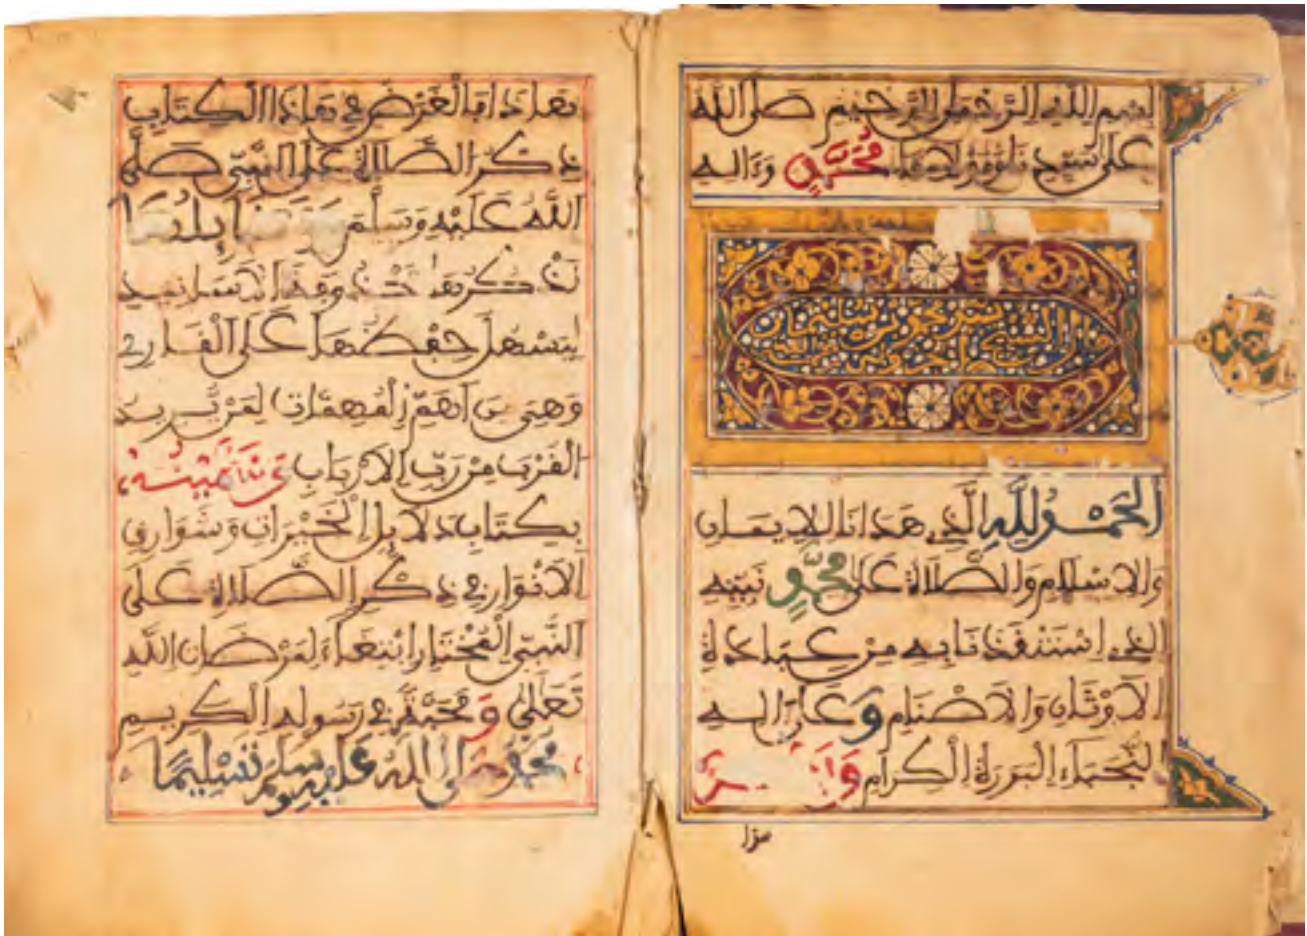 بسم الله الرحمن الرحيم صلى الله
على سيدنا ومولانا محمد وءاله
قال الشيخ
الحمد لله الذي هدانا للايمان
والاسلام والصلاة على محمد نبيه
الذي استنقذنا به من عبادة
الاوثان والاصنام وعلى ءاله
النجباء البررة الكرام وبعد
هذا فالغرض في هذا الكتاب
ذكر الصلاة على النبي صلى
الله عليه وسلم وفضايلها
نذكرها محذوفة الاسانيد
ليسهل حفظها على القارئ
وهي من اهم المهمات لمن يريد
القرب من رب الارباب وسميته
بكتاب دلايل الخيرات وشوارق
الانوار في ذكر الصلاة على
النبي المختار ابتغاء لمرضات الله
تعلى ومحبة في رسوله الكريم
محمد صلى الله عليه وسلم تسليما